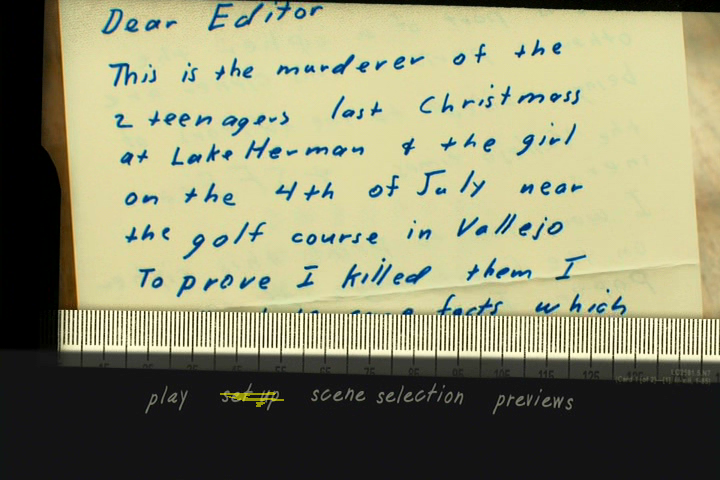 Dear Editor
This is the murderer of the
2 teenagers last Christmass
at Lake Herman & the girl
on the 4th of July near
the golf course in Vallejo
To prove I killed them I
facts which
play set up scene selection previews